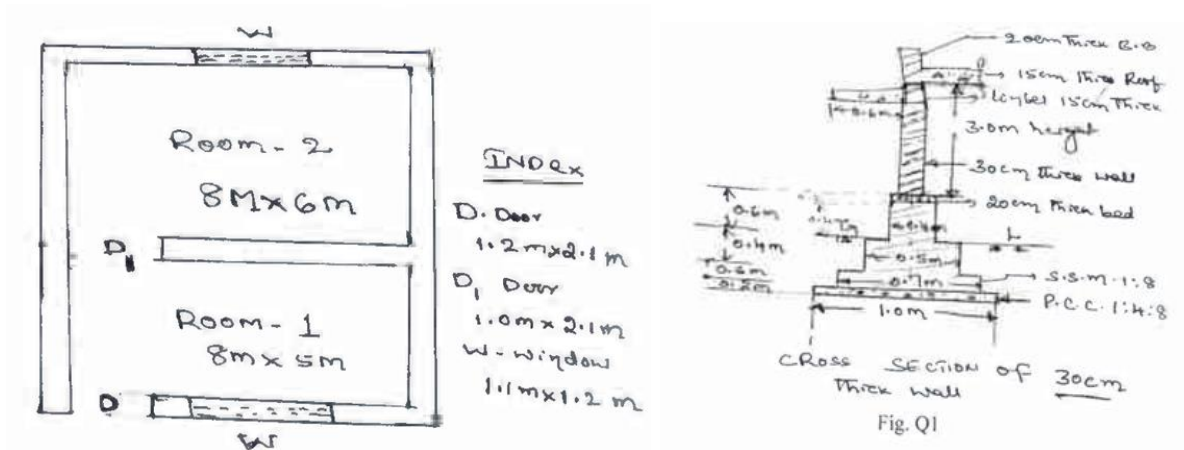 W
Room - 2
8M x 6m
D1
Room - 1
8m x 5m
D
W
INDEX
D. Door
1.2mx2.1m
D1 Door
1.0m x 2.1m
W - window
1.1mx1.2 m
20cm Thick B.B
15cm Thick Roof
15cm Thick
3.0m height
30cm thick wall
20cm thick bed
0.6m
0.4m
0.5m
0.7m
S.S.M. 1:8
P.C.C. 1:4:8
1.0m
CROSS SECTION OF 30cm
Thick wall
Fig. Q1